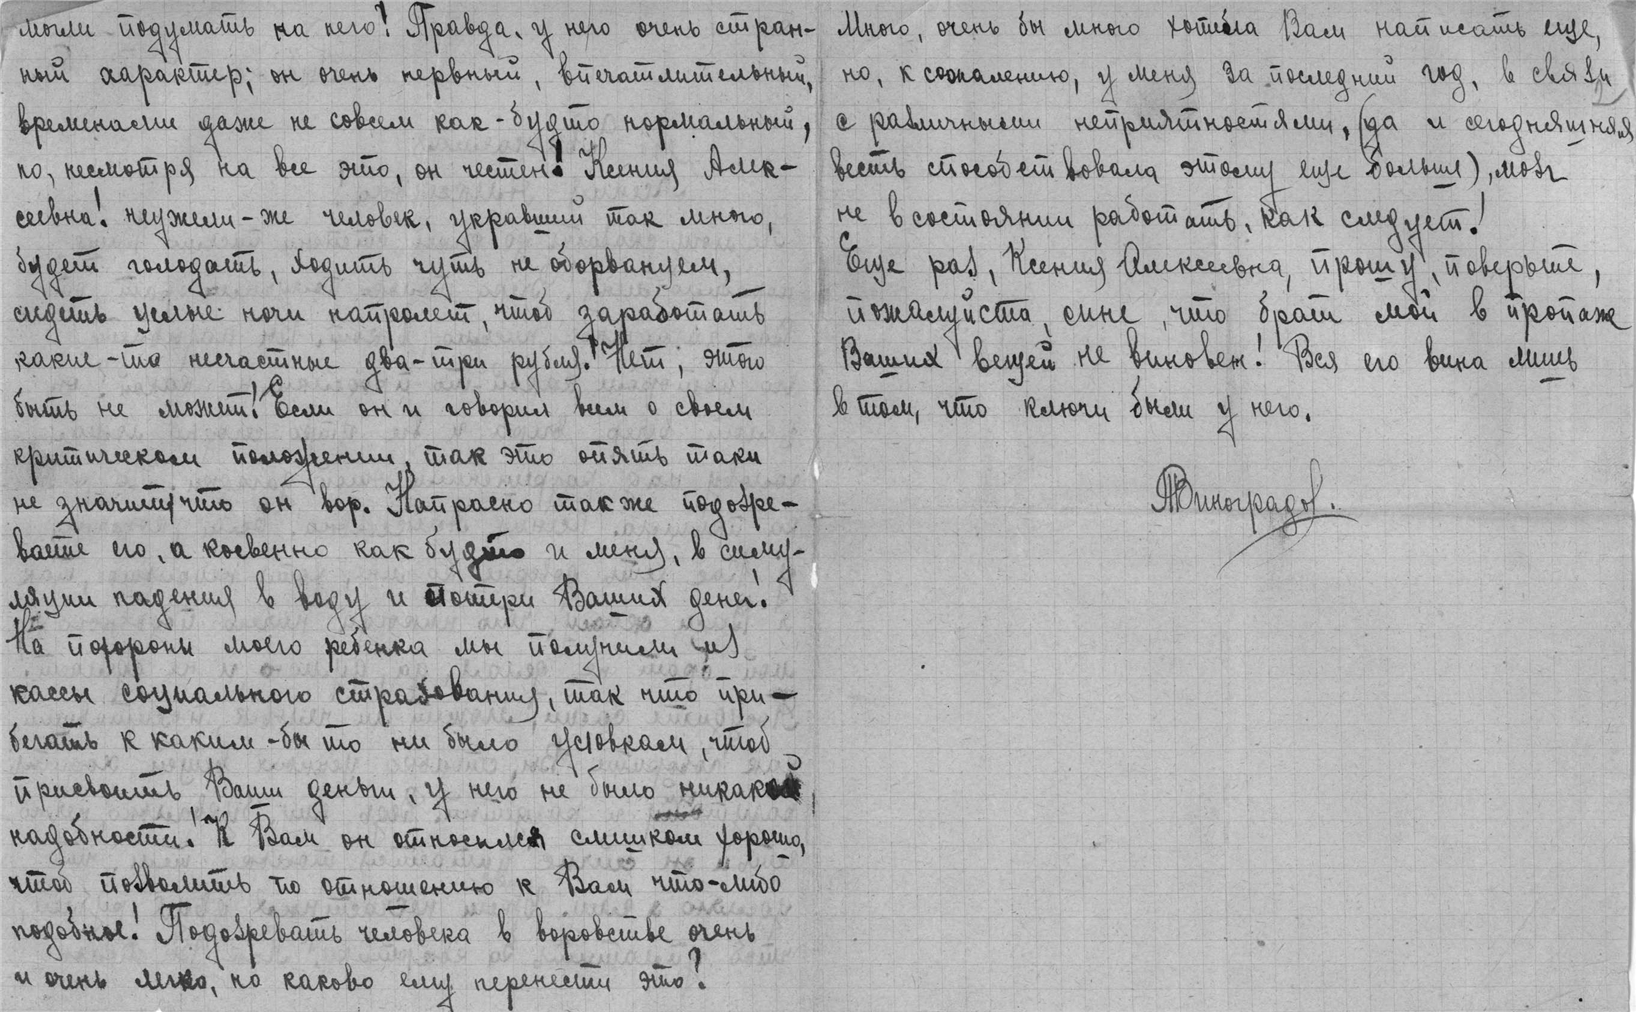 могли подумать на него! Правда, у него очень стран-
ный характер; он очень нервный, впечатлительный,
временами даже не совсем как-будто нормальный,
но, несмотря на все это, он честен! Ксения Алек-
сеевна! неужели-же человек, укравший так много,
будет голодать, ходить чуть не оборванцем,
сидеть целые ночи напролет, чтоб заработать
какие-то несчастные два-три рубля! Нет; этого
быть не может! Если он и говорил всем о своем
критическом положении, так это опять таки
не значит, что он вор. Напрасно также подозре-
ваете его, а косвенно как будто и меня, в симу-
ляции падения в воду и потери Ваших денег!
На похороны моего ребенка мы получили из
кассы социального страхования, так что при-
бегать к каким-бы то ни было уловкам, чтоб
присвоить Ваши деньги, у него не было никакой
надобности! К Вам он относился слишком хорошо,
чтоб позволить по отношению к Вам что-либо
подобное! Подозревать человека в воровстве очень
и очень легко, но каково ему перенести это?
Много, очень бы много хотела Вам написать еще,
но, к сожалению, у меня за последний год, в связи
с различными неприятностями, (да и сегодняшняя
весть способствовала этому еще больше), мозг
не в состоянии работать, как следует!
Еще раз, Ксения Алексеевна, прошу, поверьте,
пожалуйста, мне, что брат мой в пропаже
Ваших вещей не виновен! Вся его вина лишь
в том, что ключи были у него.
ТВиноградов.